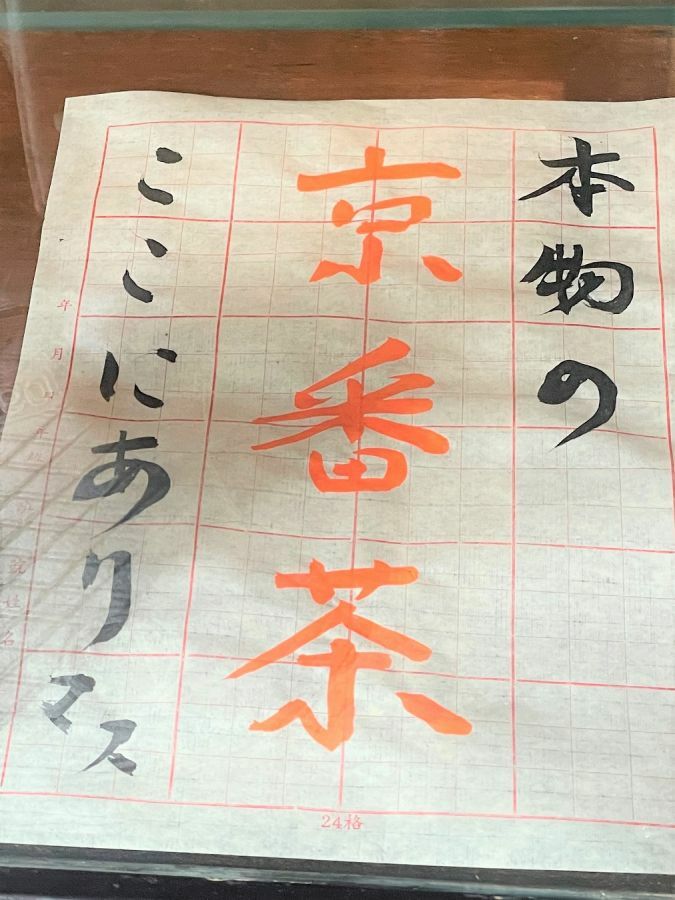 本物の
京番茶
ここにありマス
年
月
24格